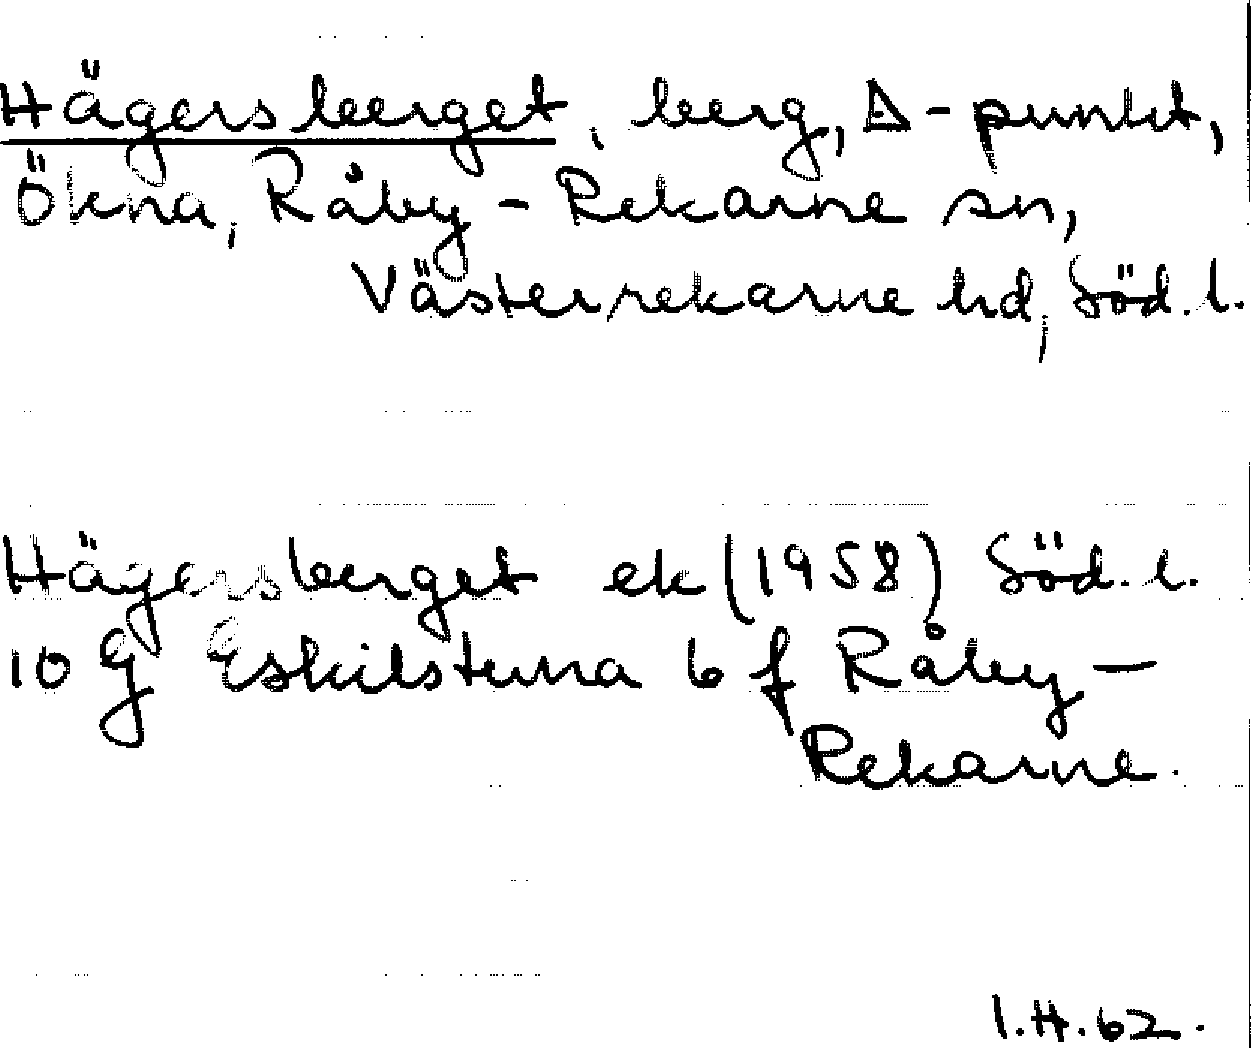 Hägersberget, berg, Δ-punkt,
Ökna, Råby-Rekarne sn,
Västerrekarne hd, Söd. l.
Hägersberget ek (1958) Söd. l.
10 G Eskilstuna 6 f Råby-
Rekarne.
I.H.62.